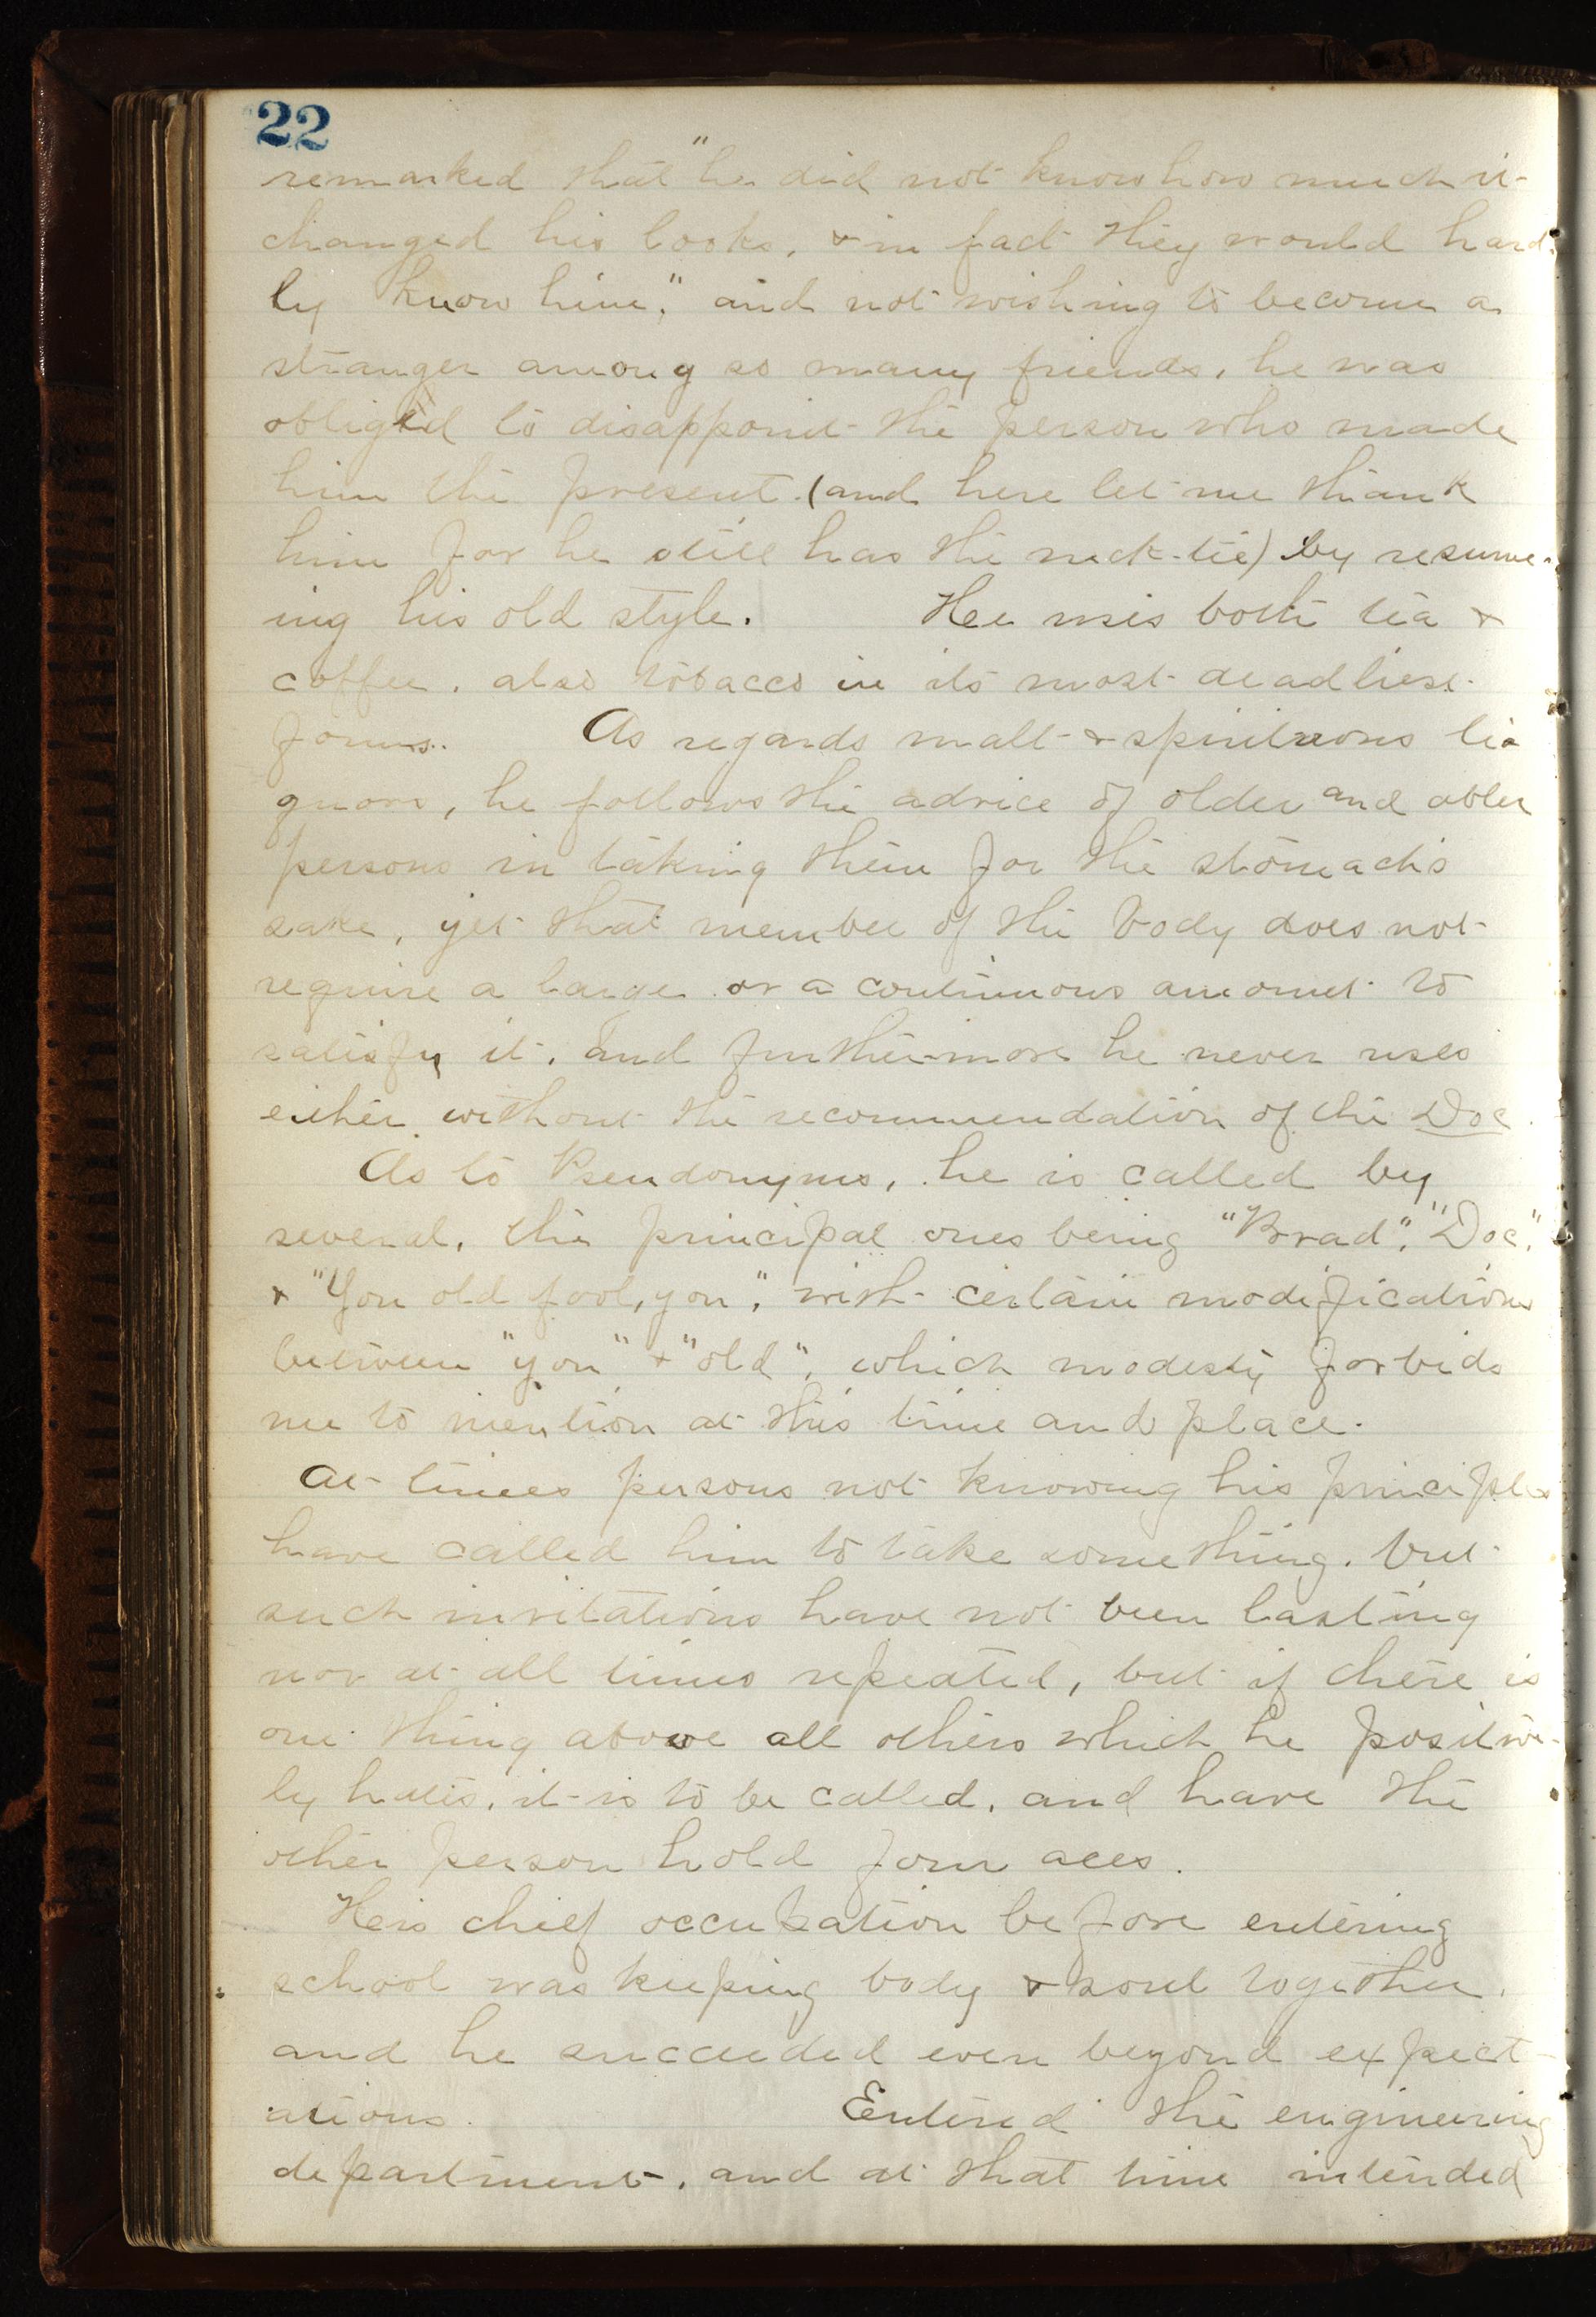 22
remarked that "he did not know how much it
changed his looks, & in fact they would hard-
ly know him," and not wishing to become a
stranger among so many friends, he was
obliged to disappoint the person who made
him the present (and here let me thank
him for he still has the neck-tie) by resume-
ing his old style. He uses both tea &
coffee, also tobacco in its most deadliest
forms. As regards malt & spirituous li-
quors, he follows the advice of older and abler
persons in taking them for the stomach's
sake, yet that member of the body does not
require a large or a continuous amount to
satisfy it, and furthermore he never uses
either without the recommendation of the Doc.
As to Pseudonyms, he is called by
several, the principal ones being "Brad", "Doc",
& "You old fool, you", with certain modifications
between "you" & "old", which modesty forbids
me to mention at this time and place.
At times persons not knowing his principles
have called him to take something, but
such invitations have not been lasting
nor at all times repeated, but if there is
one thing above all others which he positive-
ly hates, it is to be called, and have the
other person hold four aces.
His chief occupation before entering
school was keeping body & soul together,
and he succeeded even beyond expect-
ations. Entered the engineering
department, and at that time intended